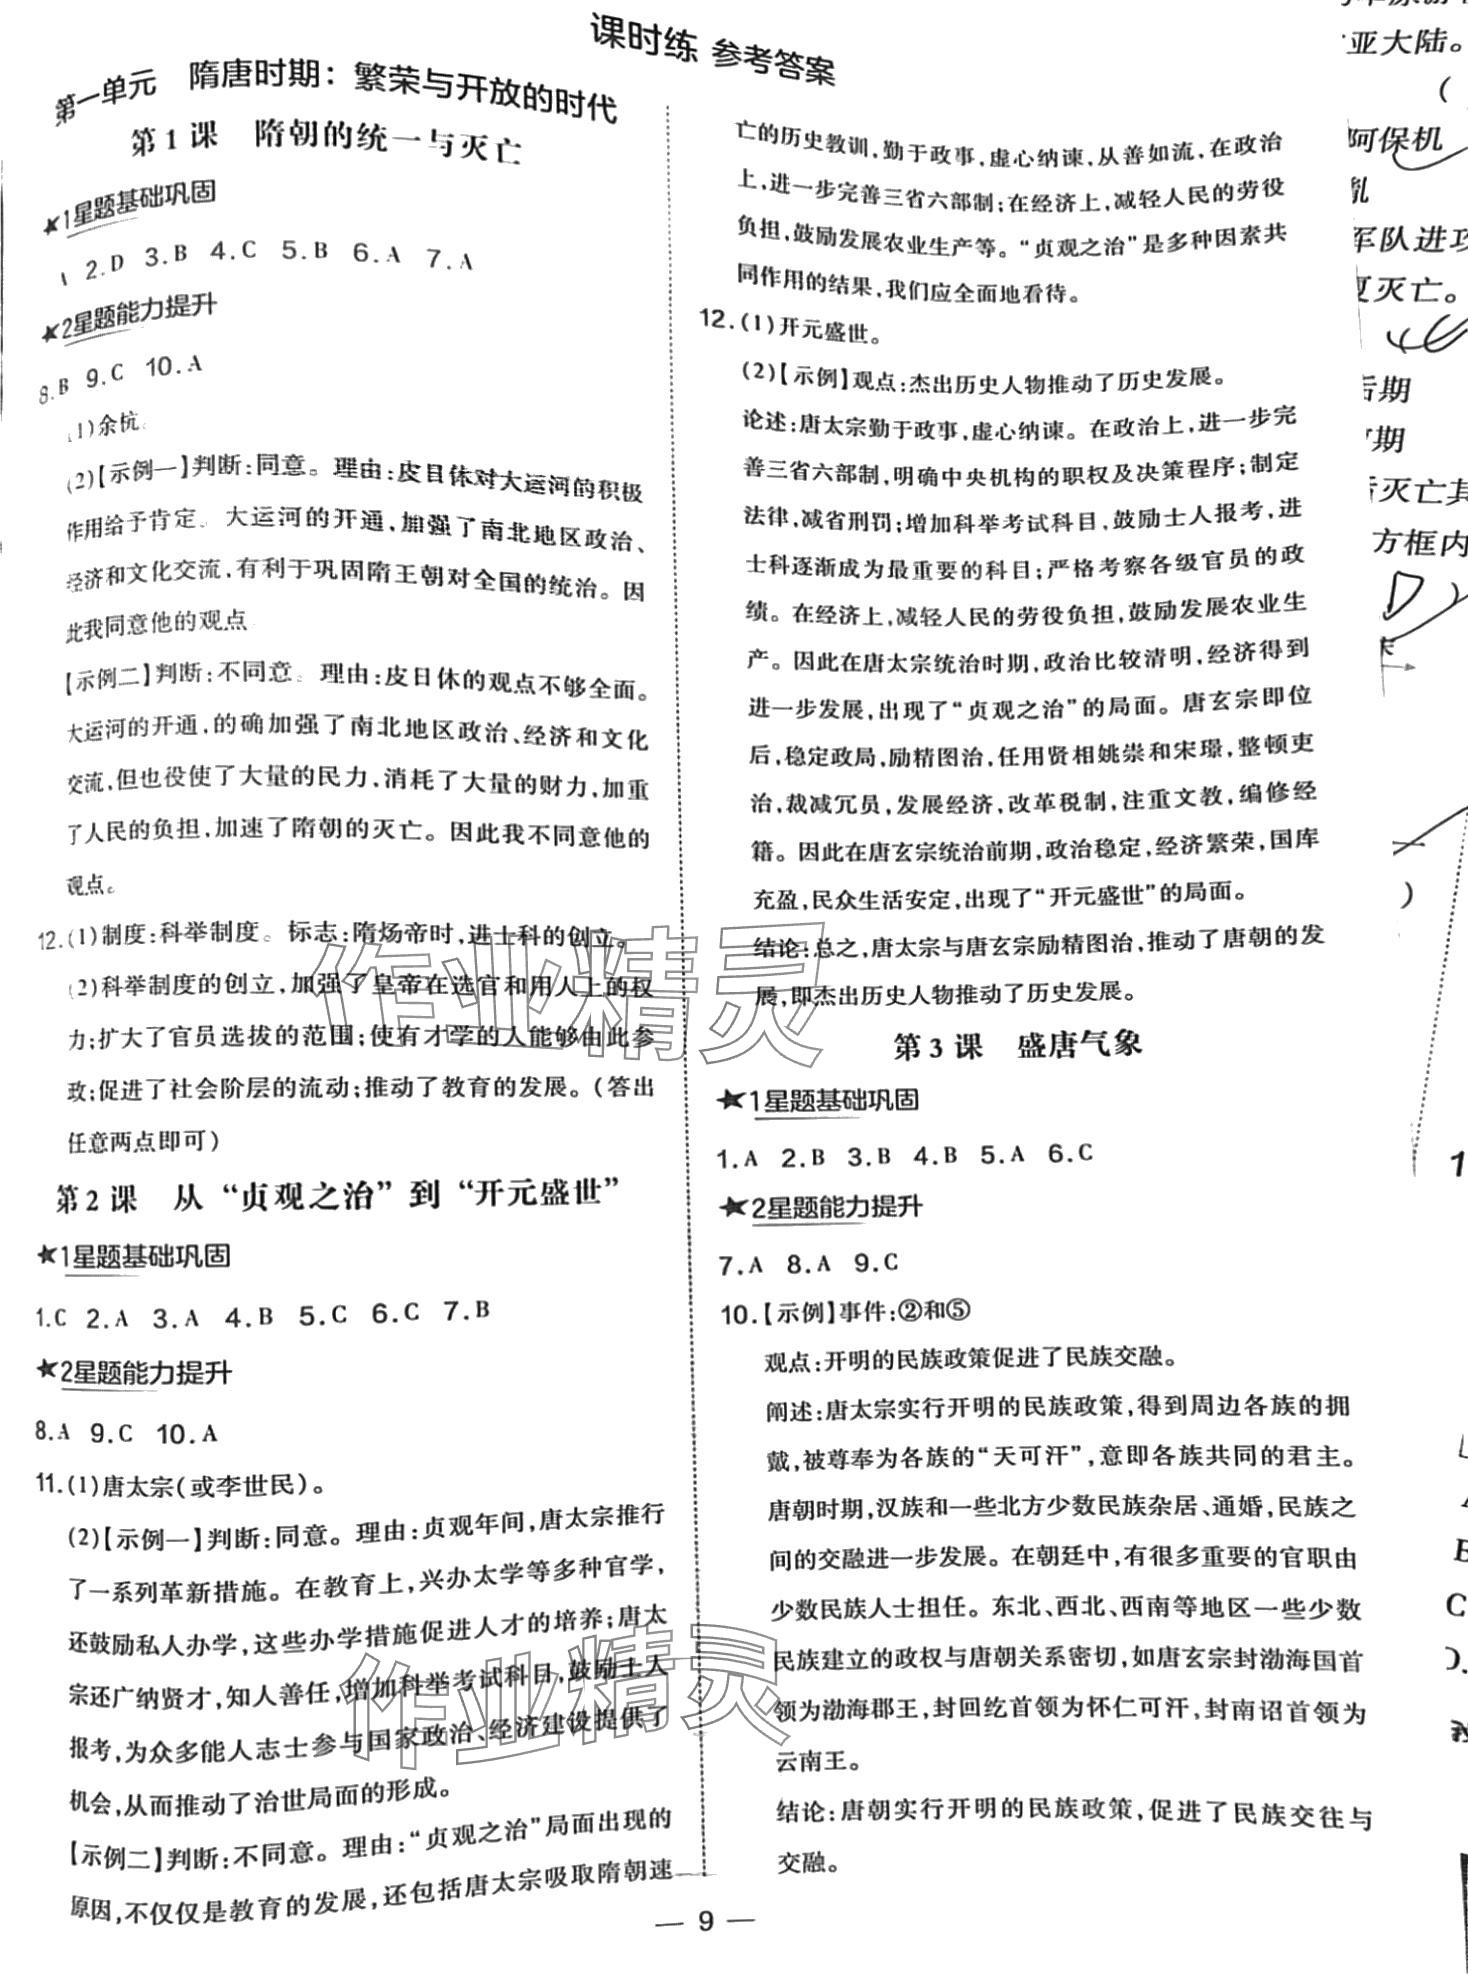 课时练 参考答案
第一单元 隋唐时期：繁荣与开放的时代
第1课 隋朝的统一与灭亡
★1星题基础巩固
2.D 3.B 4.C 5.B 6.A 7.A
★2星题能力提升
8.B 9.C 10.A
(1)余杭。
(2)【示例一】判断：同意。理由：皮日休对大运河的积极
作用给予肯定。大运河的开通，加强了南北地区政治、
经济和文化交流，有利于巩固隋王朝对全国的统治。因
此我同意他的观点
【示例二】判断：不同意。理由：皮日休的观点不够全面。
大运河的开通，的确加强了南北地区政治、经济和文化
交流，但也役使了大量的民力，消耗了大量的财力，加重
了人民的负担，加速了隋朝的灭亡。因此我不同意他的
观点。
12.(1)制度：科举制度。标志：隋炀帝时，进士科的创立。
(2)科举制度的创立，加强了皇帝在选官和用人上的权
力；扩大了官员选拔的范围；使有才学的人能够由此参
政；促进了社会阶层的流动；推动了教育的发展。(答出
任意两点即可)
第2课 从“贞观之治”到“开元盛世”
★1星题基础巩固
1.C 2.A 3.A 4.B 5.C 6.C 7.B
★2星题能力提升
8.A 9.C 10.A
11.(1)唐太宗(或李世民)。
(2)【示例一】判断：同意。理由：贞观年间，唐太宗推行
了一系列革新措施。在教育上，兴办太学等多种官学，
还鼓励私人办学，这些办学措施促进人才的培养；唐太
宗还广纳贤才，知人善任，增加科举考试科目，鼓励士人
报考，为众多能人志士参与国家政治、经济建设提供了
机会，从而推动了治世局面的形成。
【示例二】判断：不同意。理由：“贞观之治”局面出现的
原因，不仅仅是教育的发展，还包括唐太宗吸取隋朝速
亡的历史教训，勤于政事，虚心纳谏，从善如流，在政治
上，进一步完善三省六部制；在经济上，减轻人民的劳役
负担，鼓励发展农业生产等。“贞观之治”是多种因素共
同作用的结果，我们应全面地看待。
12.(1)开元盛世。
(2)【示例】观点：杰出历史人物推动了历史发展。
论述：唐太宗勤于政事，虚心纳谏。在政治上，进一步完
善三省六部制，明确中央机构的职权及决策程序；制定
法律，减省刑罚；增加科举考试科目，鼓励士人报考，进
士科逐渐成为最重要的科目；严格考察各级官员的政
绩。在经济上，减轻人民的劳役负担，鼓励发展农业生
产。因此在唐太宗统治时期，政治比较清明，经济得到
进一步发展，出现了“贞观之治”的局面。唐玄宗即位
后，稳定政局，励精图治，任用贤相姚崇和宋璟，整顿吏
治，裁减冗员，发展经济，改革税制，注重文教，编修经
籍。因此在唐玄宗统治前期，政治稳定，经济繁荣，国库
充盈，民众生活安定，出现了“开元盛世”的局面。
结论：总之，唐太宗与唐玄宗励精图治，推动了唐朝的发
展，即杰出历史人物推动了历史发展。
第3课 盛唐气象
★1星题基础巩固
1.A 2.B 3.B 4.B 5.A 6.C
★2星题能力提升
7.A 8.A 9.C
10.【示例】事件：②和⑤
观点：开明的民族政策促进了民族交融。
阐述：唐太宗实行开明的民族政策，得到周边各族的拥
戴，被尊奉为各族的“天可汗”，意即各族共同的君主。
唐朝时期，汉族和一些北方少数民族杂居、通婚，民族之
间的交融进一步发展。在朝廷中，有很多重要的官职由
少数民族人士担任。东北、西北、西南等地区一些少数
民族建立的政权与唐朝关系密切，如唐玄宗封渤海国首
领为渤海郡王，封回纥首领为怀仁可汗，封南诏首领为
云南王。
结论：唐朝实行开明的民族政策，促进了民族交往与
交融。
— 9 —
亚大陆。
阿保机
军队进攻
夏灭亡。
后期
期
灭亡其
方框内
作业精灵
作业精灵